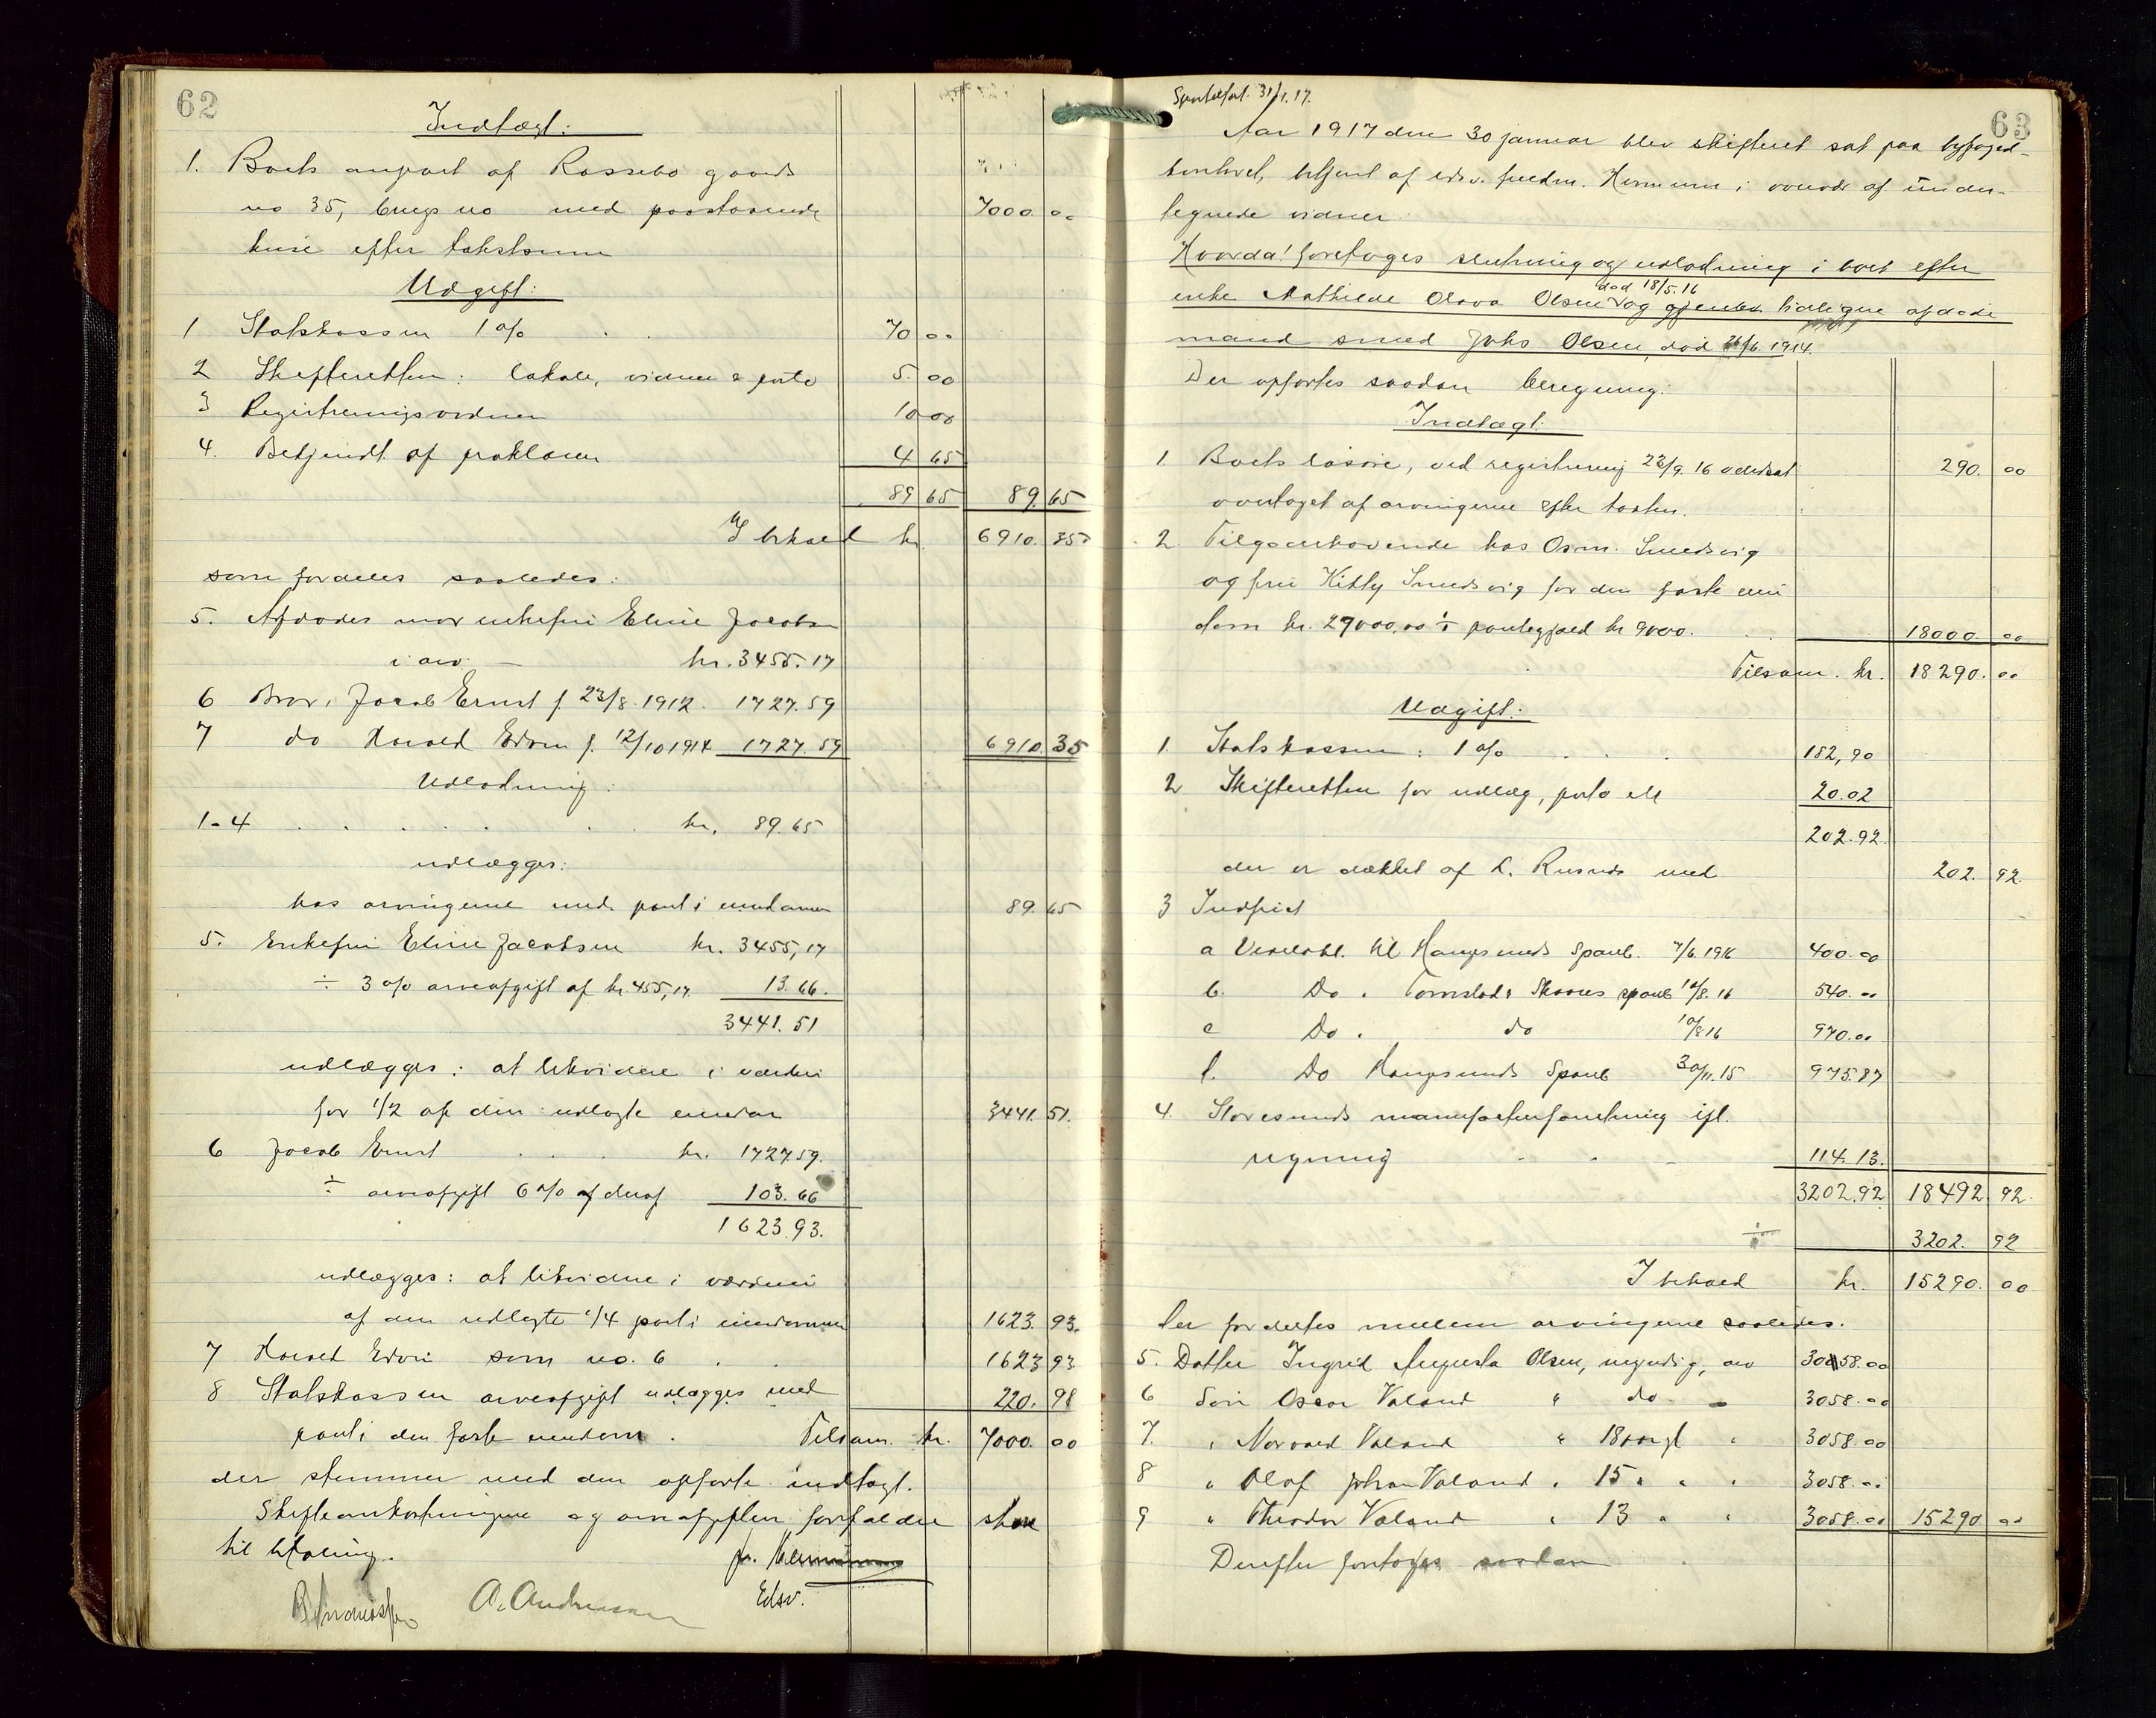 62
Indtægt:
1. Boets anpart af Rossebo gaards
no 35, brugs no med paastaaende 7000. 00
huse efter takstsum
Udgift:
1 Statskassen 1 o/o . . 70 00
2 Skifteretten: lokale, vidner & porto 5. 00
3 Registreringsvidner 10 00
4. Bekjendtg. af proklama 4 65
89 65 89. 65
I behold kr. 6910. 35
som fordeles saaledes:
5. Afdødes mor enkefru Eline Jacobsen
i arv kr. 3455. 17
6 Bror, Jacob Ernst f 23/8. 1912. 1727. 59
7 do Harald Edvin f. 12/10 1914 1727. 59 6910. 35
Udlodning:
1-4 . . . . . . kr. 89. 65
udlægges:
hos arvingerne med pant i eiendommen 89. 65
5. Enkefru Eline Jacobsen kr. 3455, 17
÷ 3 o/o arveafgift af kr 455, 17. 13. 66.
3441. 51
udlægges: at likvidere i værdien
for 1/2 af den udlagte eiendom 3441. 51.
6 Jacob Ernst . . . kr. 1727 59.
÷ arveafgift 6 o/o af deraf 103. 66
1623. 93.
udlægges: at likvidere i værdien
af den udlagte 1/4 part i eiendommen 1623. 93.
7 Harald Edvin som no. 6 . . 1623 93
8 Statskassen arveafgift udlægges med 220. 98
pant i den faste eiendom. Tilsam. kr. 7000. 00
der stemmer med den opførte indtægt.
Skifteomkostningerne og arveafgiften forfalder strax
til betaling.
A. Andreassen
Edsv.
63
Sportelført. 31/1. 17.
Aar 1917 den 30 januar blev skifteret sat paa byfoged-
kontoret, betjent af edsv. fuldm. Hermann i overvær af under-
tegnede vidner.
Hvorda! foretoges slutning og udlodning i boet efter
død 18/5. 16
enke Mathilde Olava Olsen og tidligere afdøde
mand smed Johs Olsen, død 26/6. 1914.
Der opførtes saadan beregning:
Indtægt:
1. Boets løsøre, ved registrering 23/9. 16 værdsat 290. 00
overtaget af arvingerne efter taksten.
2. Tilgodehavende hos Osm. Smedsvig
og fru Kitty Smedsvig for den faste eien
dom kr. 27000,00 ÷ pantegjæld kr 9000. 18000. 00
Tilsam. kr. 18290. 00
Udgift:
1. Statskassen: 1 o/o . . . 182, 90
2 Skifteretten for udlæg, porto etc 20. 02
202. 92.
der er dækket af med 202. 92.
3 Indfriet
a Vexelobl. til Haugesunds Sparb. 7/6. 1916 400. 00
b. Do. Torvestad & Skaares sparb 12/8. 16 540. 00
c Do. do 10/8 16 970. 00
d. Do Haugesunds Sparb 30/11. 15 975. 87
4. Storesunds manufakturforretning ifl.
regning . . - 114. 13.
3202. 92 18492. 92.
÷ 3202. 92
I behold kr. 15290. 00
der fordeltes mellem arvingerne saaledes.
5. Datter Ingrid Augusta Olsen, myndig, arv 3058. 00
6 Søn Oscar Valand " do " 3058. 00
7. " Norvald Valand " 18 aar gl " 3058. 00
8 " Olaf Johan Valand " 15 " " " 3058. 00
9 " Theodor Valand " 13 " " 3058. 00 15290 00
Derefter foretoges saadan